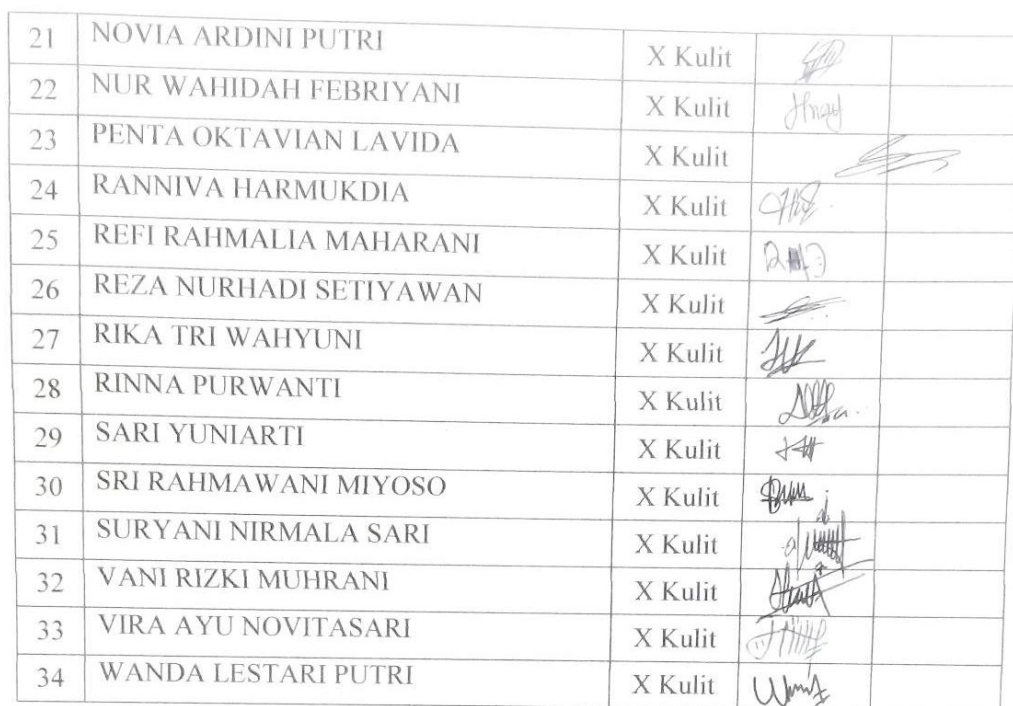 21 NOVIA ARDINI PUTRI X Kulit
22 NUR WAHIDAH FEBRIYANI X Kulit
23 PENTA OKTAVIAN LAVIDA X Kulit
24 RANNIVA HARMUKDIA X Kulit
25 REFI RAHMALIA MAHARANI X Kulit
26 REZA NURHADI SETIYAWAN X Kulit
27 RIKA TRI WAHYUNI X Kulit
28 RINNA PURWANTI X Kulit
29 SARI YUNIARTI X Kulit
30 SRI RAHMAWANI MIYOSO X Kulit
31 SURYANI NIRMALA SARI X Kulit
32 VANI RIZKI MUHRANI X Kulit
33 VIRA AYU NOVITASARI X Kulit
34 WANDA LESTARI PUTRI X Kulit